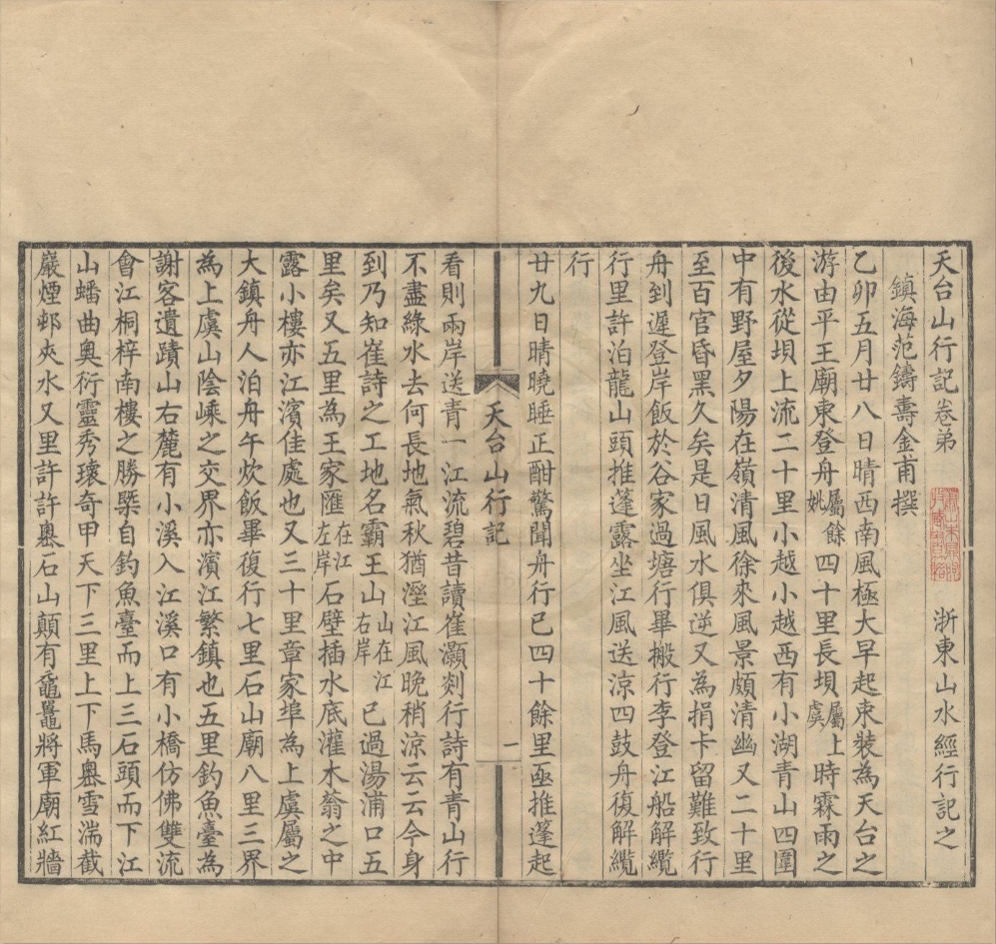 天台山行記卷弟　浙東山水經行記之
鎮海范鑄壽金甫撰
乙卯五月廿八日晴西南風極大早起束裝為天台之
游由平王廟東登舟屬餘姚四十里長壩屬上虞時霖雨之
後水從壩上流二十里小越小越西有小湖青山四圍
中有野屋夕陽在嶺清風徐來風景頗清幽又二十里
至百官昏黑久矣是日風水俱逆又為捐卡留難致行
舟到遲登岸飯於谷家過塘行畢搬行李登江船解纜
行里許泊龍山頭推篷露坐江風送涼四鼓舟復解纜
行
廿九日晴曉睡正酣驚聞舟行已四十餘里亟推篷起
天台山行記　一
看則兩岸送青一江流碧昔讀崔灝剡行詩有青山行
不盡綠水去何長地氣秋猶溼江風晚稍涼云云今身
到乃知崔詩之工地名霸王山山在江右岸已過湯浦口五
里矣又五里為王家匯在江左岸石壁插水底灌木蓊之中
露小樓亦江濱佳處也又三十里章家埠為上虞屬之
大鎮舟人泊舟午炊飯畢復行七里石山廟八里三界
為上虞山陰嵊之交界亦濱江繁鎮也五里釣魚臺為
謝客遺蹟山右麓有小溪入江溪口有小橋仿佛雙流
會江桐梓南樓之勝槩自釣魚臺而上三石頭而下江
山蟠曲奧衍靈秀瓌奇甲天下三里上下馬嶴雪湍截
巖煙邨夾水又里許許嶴石山顛有黿鼉將軍廟紅牆